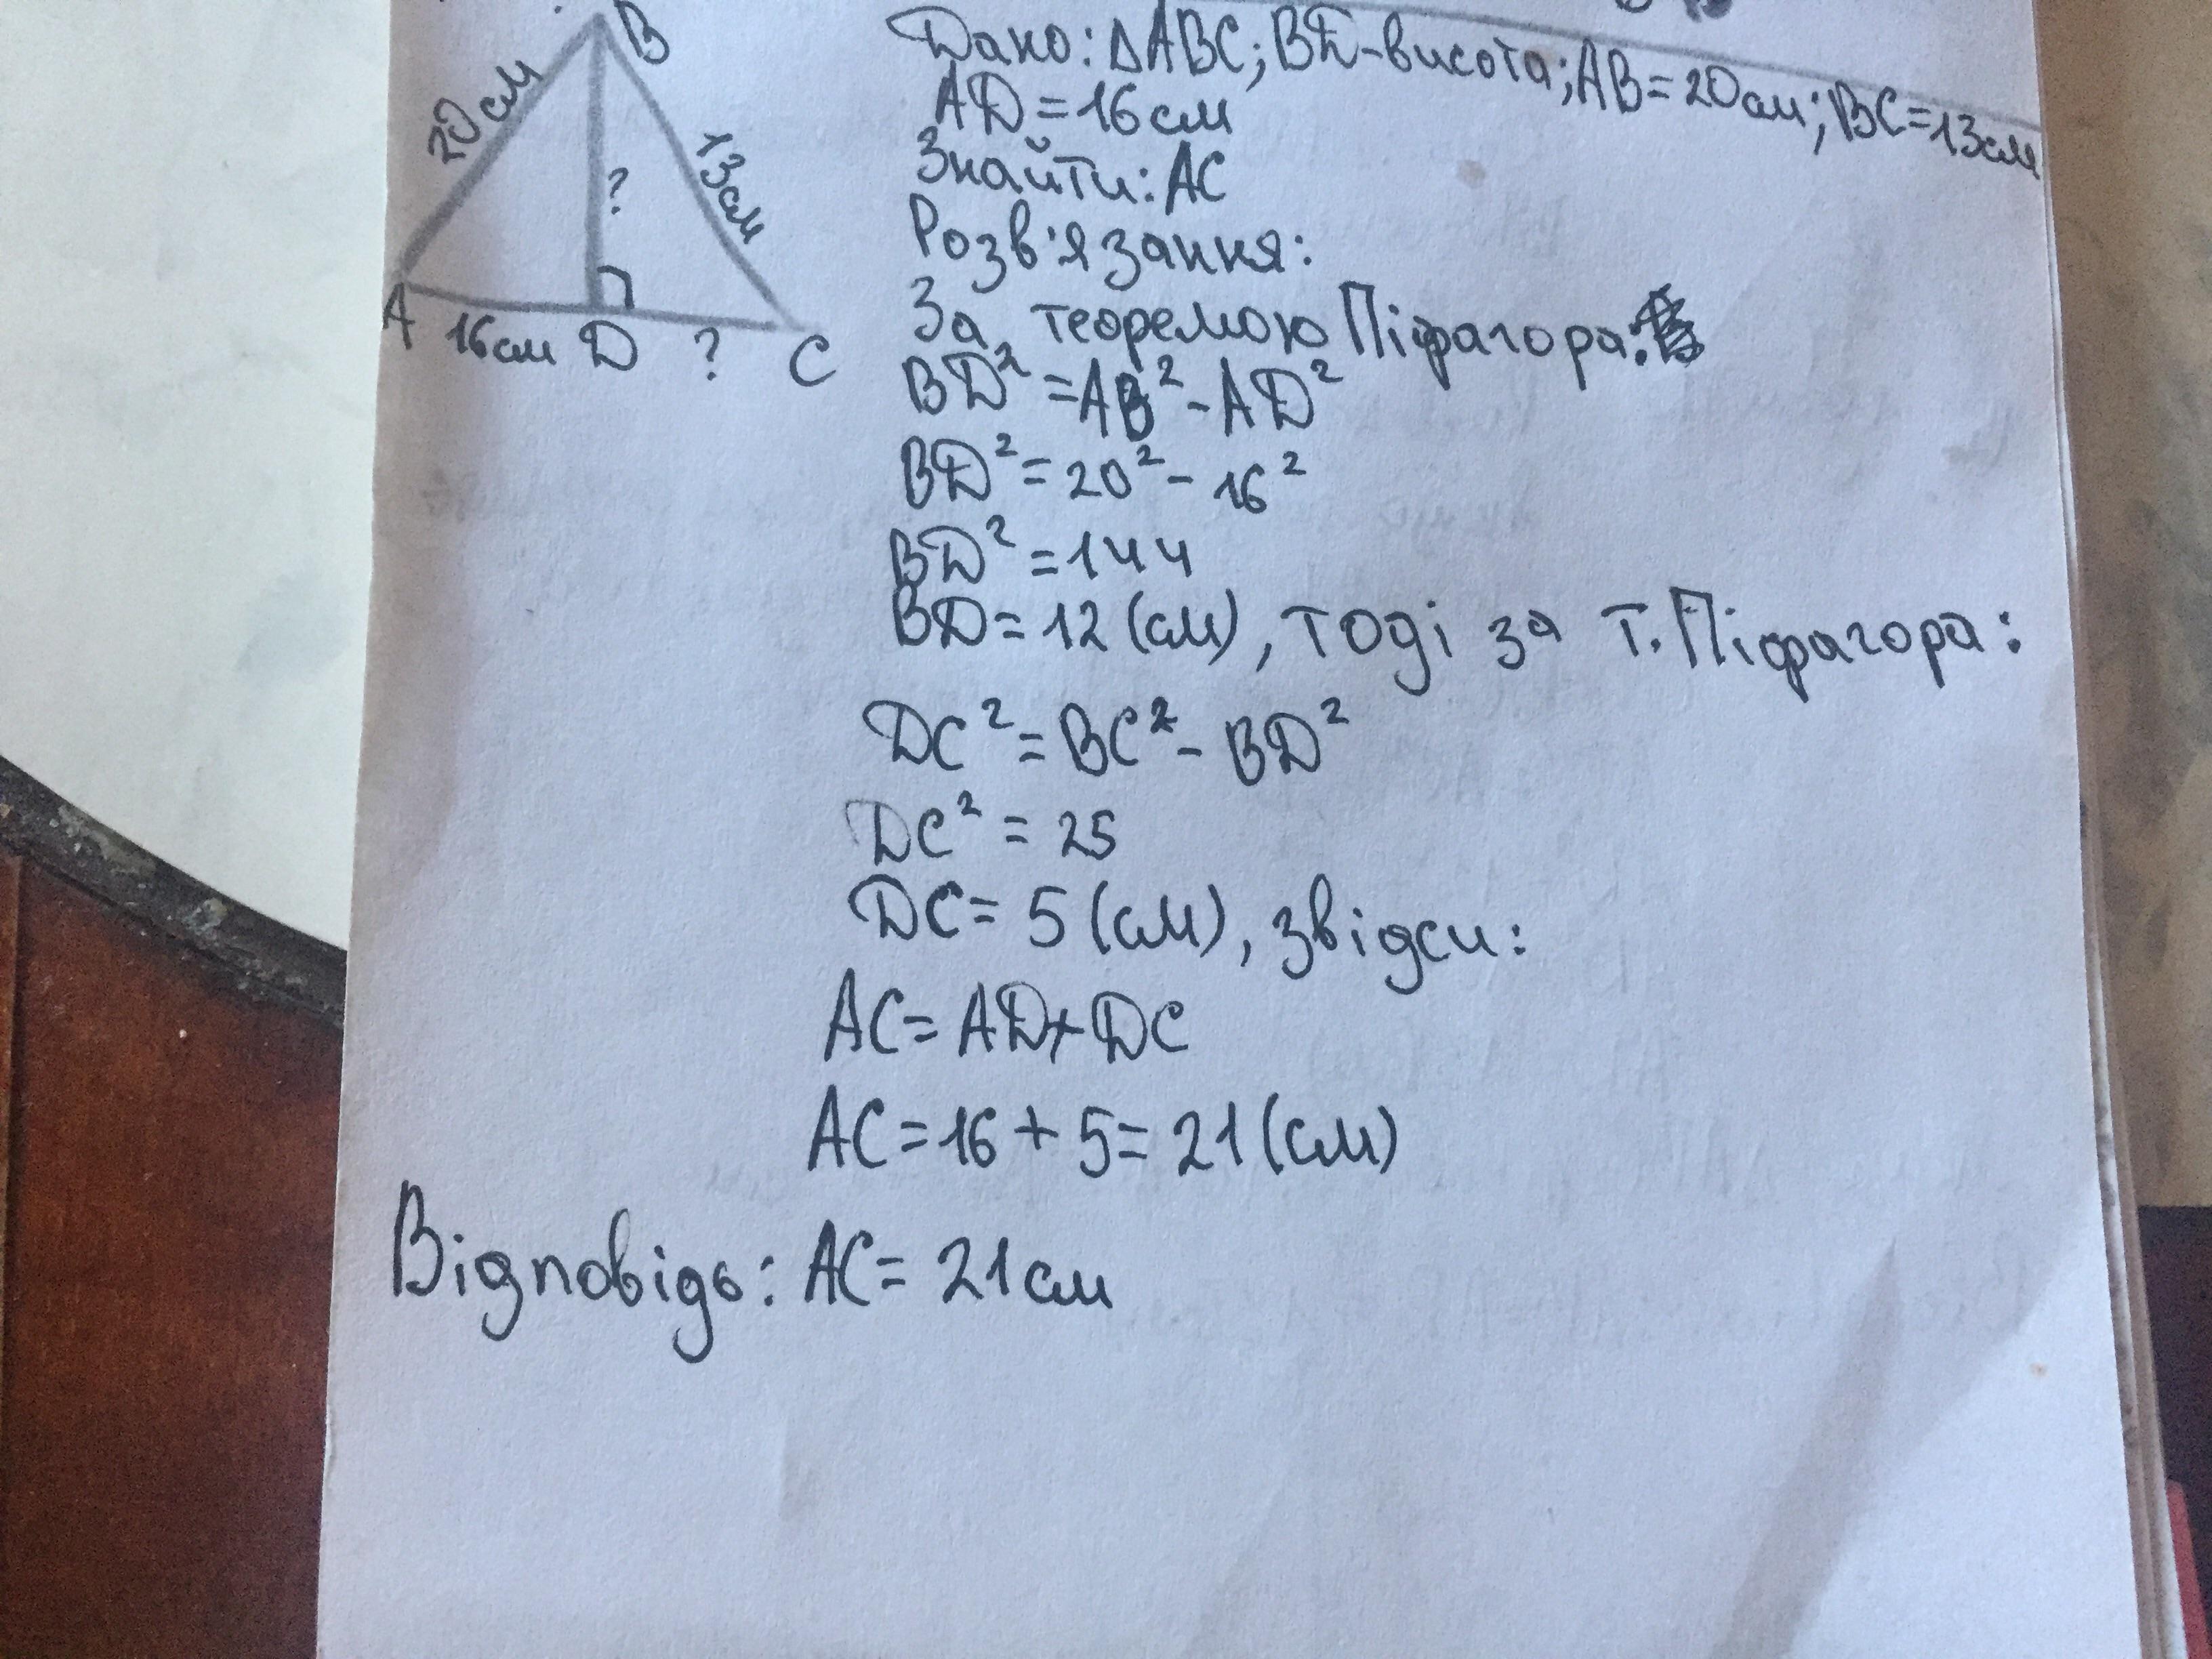 B
20см
13см
?
A
16см
D
?
C
Дано: ΔABC; BD-висота; AB=20см; BC=13см
AD=16см
Знайти: AC
Розв'язання:
За теоремою Піфагора:
BD²=AB²-AD²
BD²=20²-16²
BD²=144
BD=12(см), тоді за т. Піфагора:
DC²=BC²-BD²
DC²=25
DC=5(см), звідси:
AC=AD+DC
AC=16+5=21(см)
Відповідь: AC=21см